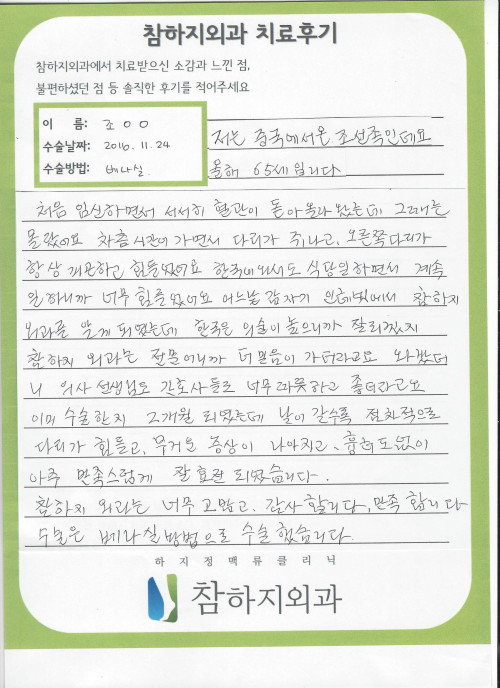 참하지외과 치료후기
참하지외과에서 치료받으신 소감과 느낀 점,
불편하셨던 점 등 솔직한 후기를 적어주세요
이 름: 조 O O
수술날짜: 2016. 11. 24
수술방법: 베나실
저는 중국에서온 조선족인데요
올해 65세입니다
처음 임신하면서 서서히 혈관이 돋아올라 왔는데 그때는
몰랐어요 차츰 시간이 가면서 다리가 쥐나고, 오른쪽다리가
항상 피곤하고 힘들었어요 한국에와서도 식당일하면서 계속
일하니까 너무 힘들었어요 어느날 갑자기 인터넷에서 참하지
외과를 알게 되였는데 한국은 의술이 높으니까 잘되겠지
참하지 외과는 전문이니까 더 믿음이 가더라고요 와봤더
니 의사 선생님도 간호사들도 너무 따뜻하고 좋더라고요
이미 수술한지 2개월 되였는데 날이 갈수록 점차적으로
다리가 힘들고, 무거운 증상이 나아지고, 흉터도 없이
아주 만족스럽게 잘 효관 되였습니다.
참하지 외과는 너무 고맙고. 감사 합니다, 만족 합니다
수술은 베나실 방법으로 수술 했습니다.
하지정맥류클리닉
참하지외과